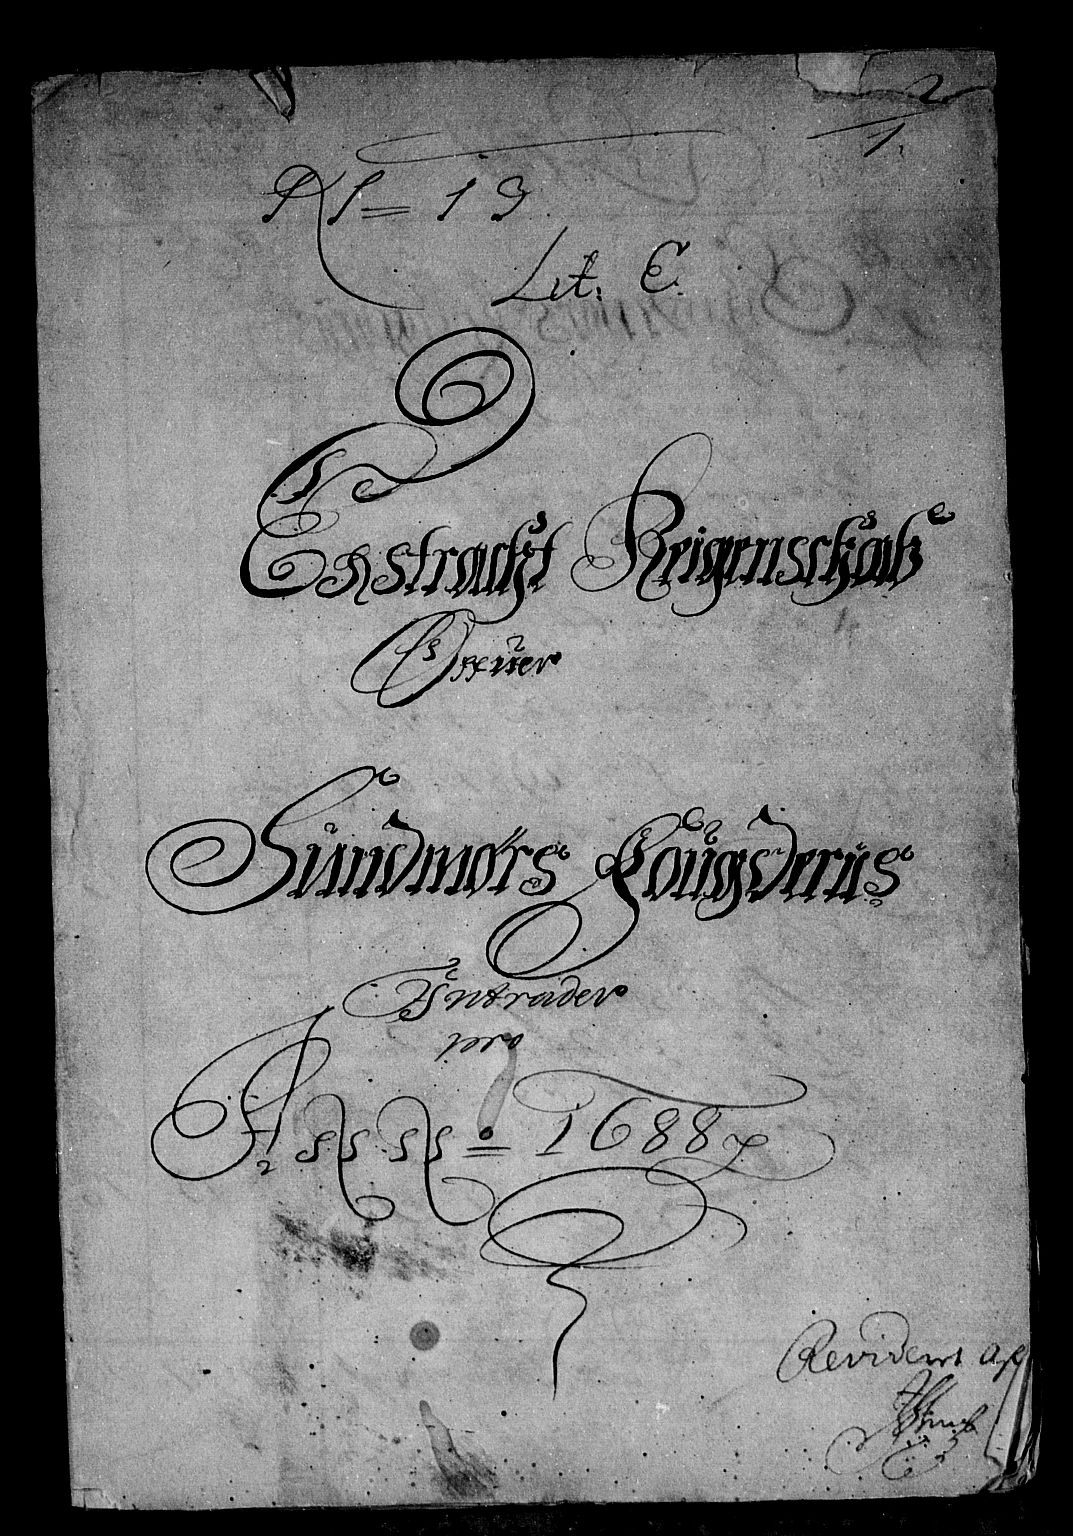 2
1.
Nº = 19
Lit: E.
Exstrackt Reigenschab
Offuer
Sundmørs Fougderies
Intrader
pro
Anno = 1688
Revideret af